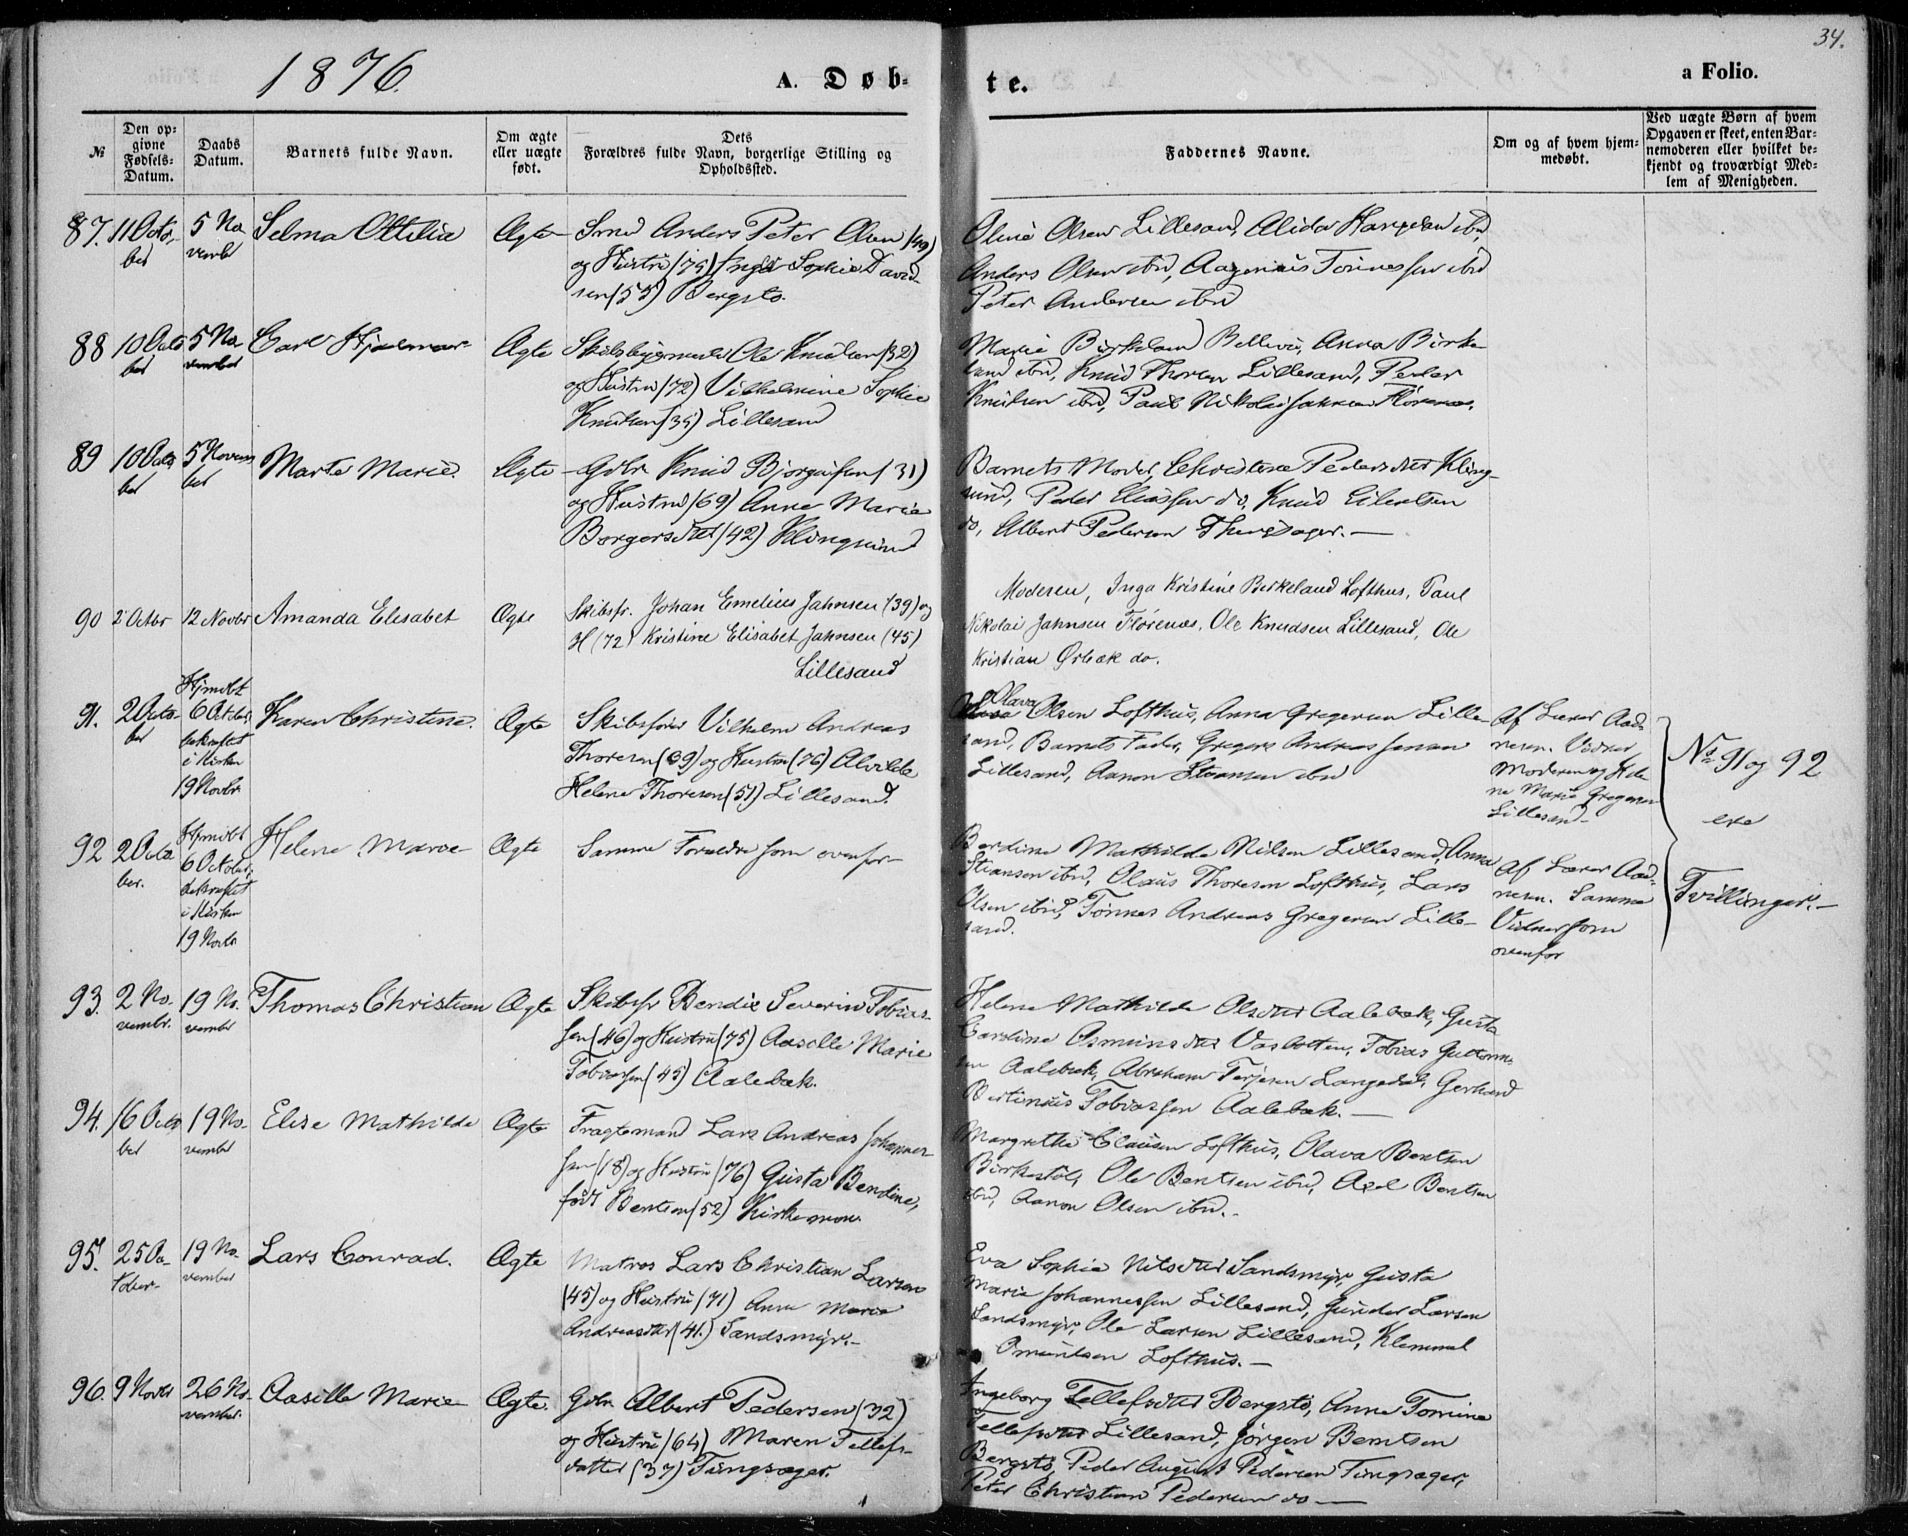 34.
1876.
A. Døb-
te.
a Folio.
№
Den op-
givne
Fødsels-
Datum.
Daabs
Datum.
Barnets fulde Navn.
Om ægte
eller uægte
født.
Dets
Forældres fulde Navn, borgerlige Stilling og
Opholdssted.
Faddernes Navne.
Om og af hvem hjem-
medøbt.
Ved uægte Børn af hvem
Opgaven er skeet, enten Bar-
nemoderen eller hvilket be-
kjendt og troværdigt Med-
lem af Menigheden.
87. 11 Octo-
ber
5 No-
vembr
Selma Ottilia
Ægte
Smed Anders Peter Olsen (49)
og Hustru (75) Sophie David-
sen (55) Bergstø.
Oline Olsen Lillesand, Alida ibid,
Anders Olsen ibid, Tønnessen ibid
Peter Andersen ibid
88 10 Octo
ber
5 No-
vember
Carl Hjalmar
Ægte
Ole Knudsen (32)
og Hustru (72) Vilhelmine Sophie
Knudsen (35) Lillesand
Marie Birkeland Anna Birke-
land ibid, Knud Thorsen Lillesand, Peder
Knudsen ibid, Paul Nikolai Jahnsen Flørenæs.
89 10 Octo
ber
5 Novem
ber
Marte Marie.
Ægte
Gdbr. Knud (31)
og Hustru (69) Anne Marie
Borgersdttr (42) Klingsund
Barnets Moder, Pedersdttr Kling-
sund, Peder Eliassen do, Knud Eilertsen
do, Albert Pedersen
90 2 Octbr 12 Novbr Amanda Elisabet
Ægte
Skibsfr. Johan Emelius Jahnsen (39) og
H (72) Kristine Elisabet Jahnsen (45)
Lillesand
Moderen, Inga Kristine Birkeland Lofthus, Paul
Nikolai Jahnsen Flørenæs, Ole Knudsen Lillesand, Ole
Kristian Ørbæk do.
91. 2 Octo-
ber
Hjmdbt
6 October
bekræftet
i Kirken
19 Novbr.
Karen Christine.
Ægte
Skibsfører Vilhelm Andreas
Thoresen (69) og Hustru (76) Alvilde
Helene Thoresen (51) Lillesand.
Olava
Olsen Lofthus, Anna Gregersen Lille-
sand, Barnets Fader, Gregers Andreas Jensen
Lillesand, Aanon Stiansen ibid
Af Lærer Aad-
nesen. Vidner
Moderen og Hele-
ne Marie Gregersen
Lillesand-
No 91 og 92
ere
Tvillinger.-
92 2 Octo
ber.
Hjmdbt
6 October
bekræftet
i Kirken
19 Novbr
Helene Marie
Ægte
Samme Forældre som ovenfor-
Berdine Mathilde Nilsen Lillesand, Anna
Stiansen ibid, Olaus Thoresen Lofthus, Lars
Olsen ibid, Tønnes Andreas Gregersen Lille-
sand.
Af Lærer Aad-
nesen. Samme
Vidner som
ovenfor
93. 2 No-
vembr.
19 No-
vembr
Thomas Christian
Ægte
Skibsfr Bendix Severin Tobias-
sen (46) og Hustru (75) Aaselle Marie
Tobiassen (45) Aalebæk.
Helene Mathilde Olsdttr Aalebæk, Gusta
Cardine Osmundsdttr Vasbotten, Tobias Guttorm-
sen Aalebæk, Abraham Terjesen Langedal, Gerhard
Bertinius Tobiassen Aalebæk.-
94. 16 Octo
ber
19 No-
vembr
Elise Mathilde
Ægte
Fragtemand Lars Andreas Johannes-
sen (18) og Hustru (76) Gusta Bendine,
født Bentsen (52) Kirkemoen.
Margrethe Clausen Lofthus, Olava Bentsen
Birkestøl, Ole Bentsen ibid, Axel Bentsen
ibid, Aanon Olsen ibid.-
95. 25 Oc-
tober
19 No-
vember
Lars Conrad.
Ægte
Matros Lars Christian Larsen
(45) og Hustru (71) Anne Marie
Andreasdttr (41.) Sandsmyr.-
Eva Sophie Nilsdttr Sandsmyr, Gusta
Marie Johannessen Lillesand, Gunder Larsen
Sandsmyr, Ole Larsen Lillesand, Klemmet
Omundsen Lofthus.-
96. 9 Novbr
26 No-
vember.
Aasille Marie
Ægte.
Gdbr. Albert Pedersen (32)
og Hustru (64) Maren Tellefs-
datter (37) Tingsager.
Ingeborg Tellefsdttr Bergstø, Anne Tomine
Tellefsdttr Lillesand, Jørgen Berntsen
Bergstø, Peder August Pedersen Tingsager,
Peter Christian Pedersen do-